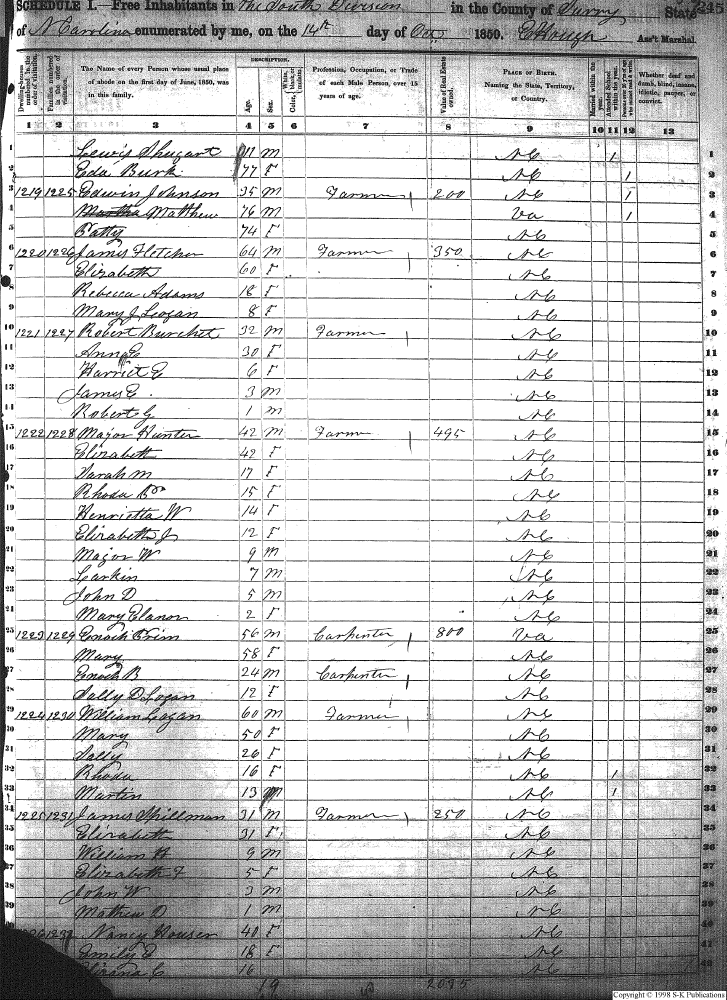 SCHEDULE I.—Free Inhabitants in The South Division in the County of Surry State
of N Carolina enumerated by me, on the 14th day of Oct 1850. Ass't Marshal.
DESCRIPTION.
Dwelling-houses numbered in the order of visitation.
Families numbered in the order of visitation.
The Name of every Person whose usual place of abode on the first day of June, 1850, was in this family.
Age.
Sex.
White, black, or mulatto.
Color,
Profession, Occupation, or Trade of each Male Person, over 15 years of age.
Value of Real Estate owned.
PLACE OF BIRTH. Naming the State, Territory, or Country.
Married within the year.
Attended School within the year.
Whether deaf and dumb, blind, insane, idiotic, pauper, or convict.
1 2 3 4 5 6 7 8 9 10 11 12 13
1 Lewis Shugart 11 M NC 1 1
2 Eda Burk 77 F NC 1 2
3 1219 1225 Edwin Johnson 35 M Farmer 200 NC 1 3
4 Martha Matthew 76 M Va 1 4
5 Patty 74 F NC 5
6 1220 1226 James Fletcher 64 M Farmer 350 NC 6
7 Elizabeth 60 F NC 7
8 Rebecca Adams 18 F NC 8
9 Mary J Logan 8 F NC 9
10 1221 1227 Robert Burchet 32 M Farmer NC 10
11 Ann E 30 F NC 11
12 Harriet E 6 F NC 12
13 James E. 3 M NC 13
14 Robert G 1 M NC 14
15 1222 1228 Major Hunter 42 M Farmer 495 NC 15
16 Elizabeth 42 F NC 16
17 Sarah M 17 F NC 17
18 Rhoda 15 F NC 18
19 Henrietta W 14 F NC 19
20 Elizabeth J 12 F NC 20
21 Major W 9 M NC 21
22 Larkin 7 M NC 22
23 John D 5 M NC 23
24 Mary Elanor 2 F NC 24
25 1223 1229 Enoch Prim 56 M Carpenter 800 Va 25
26 Mary 58 F NC 26
27 Enoch B 24 M Carpenter NC 27
28 Sally D Logan 12 F NC 28
29 1224 1230 William Logan 60 M Farmer NC 29
30 Mary 50 F NC 30
31 Sally 26 F NC 31
32 Rhoda 16 F NC 1 32
33 Martin 13 M NC 1 33
34 1225 1231 James Spillman 31 M Farmer 250 NC 34
35 Elizabeth 31 F NC 35
36 William H 9 M NC 36
37 Elizabeth F 5 F NC 37
38 John W 3 M NC 38
39 Mathew D 1 M NC 39
Nancy Houser 40 F NC 40
Emily 18 F NC
16 NC
19 2095
Copyright © 1998 S-K Publications